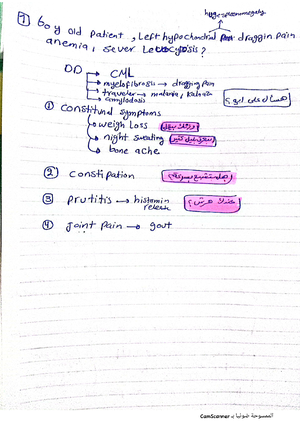 ① 60 y old patient, Left hypochondrial draggin Pain
anemia, sever Leucocytosis?
DD → CML
→ myelofibrosis → dragging Pain
→ traveler → malaria, Kala azar
→ amyloidosis
① constitunal symptoms
weigh Loss
night sweating
bone ache
② constipation
③ prutitis → histamin
release
④ joint pain → gout
الممسوحة ضوئيا بـ CamScanner